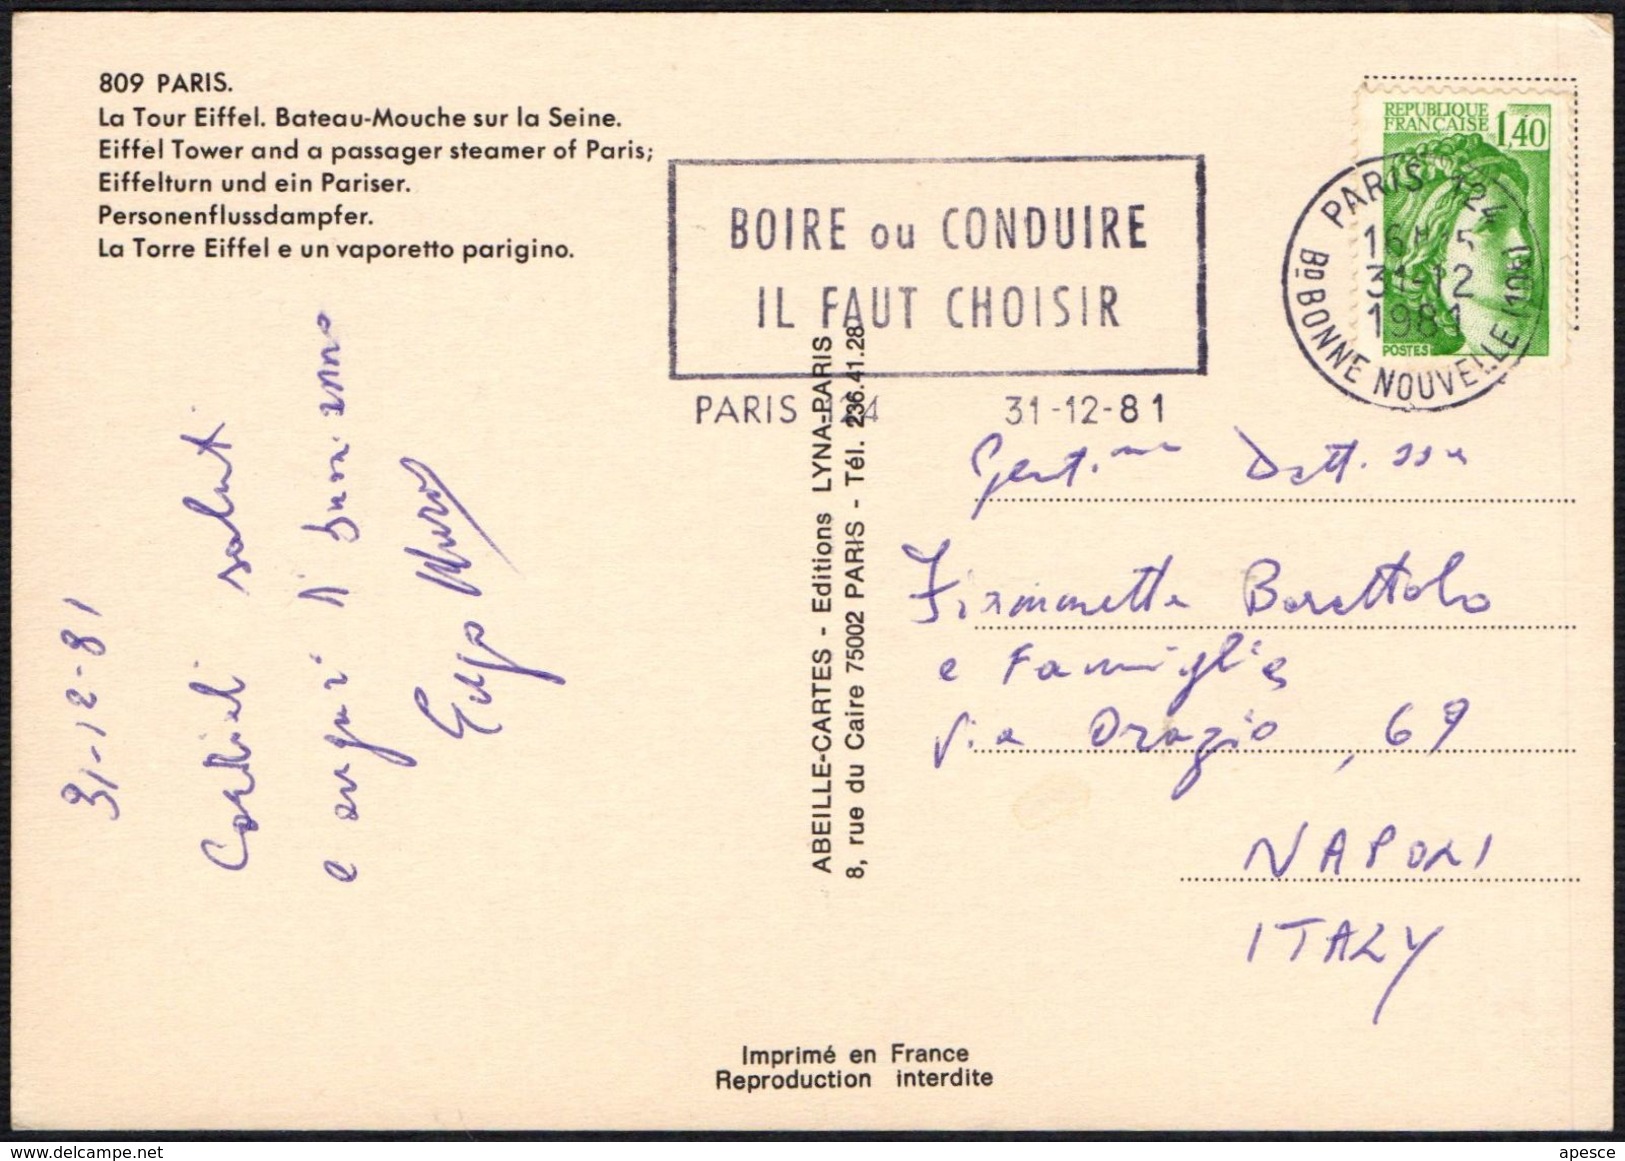 809 PARIS.
La Tour Eiffel. Bateau-Mouche sur la Seine.
Eiffel Tower and a passager steamer of Paris;
Eiffelturn und ein Pariser.
Personenflussdampfer.
La Torre Eiffel e un vaporetto parigino.
BOIRE ou CONDUIRE
IL FAUT CHOISIR
PARIS 124 31-12-81
REPUBLIQUE
FRANÇAISE 1,40
POSTES
PARIS 124
31-12
1981
Bd BONNE NOUVELLE (10e)
31-12-81
Cordiali saluti
e auguri di buon anno
ABEILLE-CARTES - Editions LYNA-PARIS
8, rue du Caire 75002 PARIS - Tél. 236.41.28
Gent.ma Dott.ssa
Barattolo
e Famiglia
Via Orazio, 69
NAPOLI
ITALY
Imprimé en France
Reproduction interdite
delcampe.net
apesce